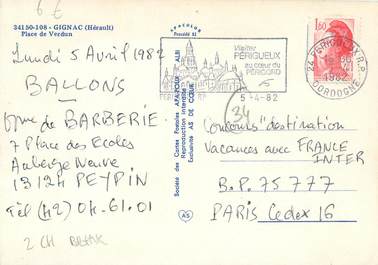 6 €
34150-108 - GIGNAC (Hérault)
Place de Verdun
Lundi 5 Avril 1982
BALLONS
de BARBERIE
7 Place des Ecoles
Auberge Neuve
13124 PEYPIN
Tél (42) 04.61.01
2 CH
APA-POUX
Société des Cartes Postales APA-POUX ALBI
Reproduction interdite
Exclusivité AS DE CŒUR
AS
Visitez
PÉRIGUEUX
au cœur du
PÉRIGORD
5-4-82
24 PERIGUEUX R.P.
1982
DORDOGNE
1,60
34
Concours "destination
Vacances avec FRANCE
INTER
B.P. 75 777
PARIS Cedex 16